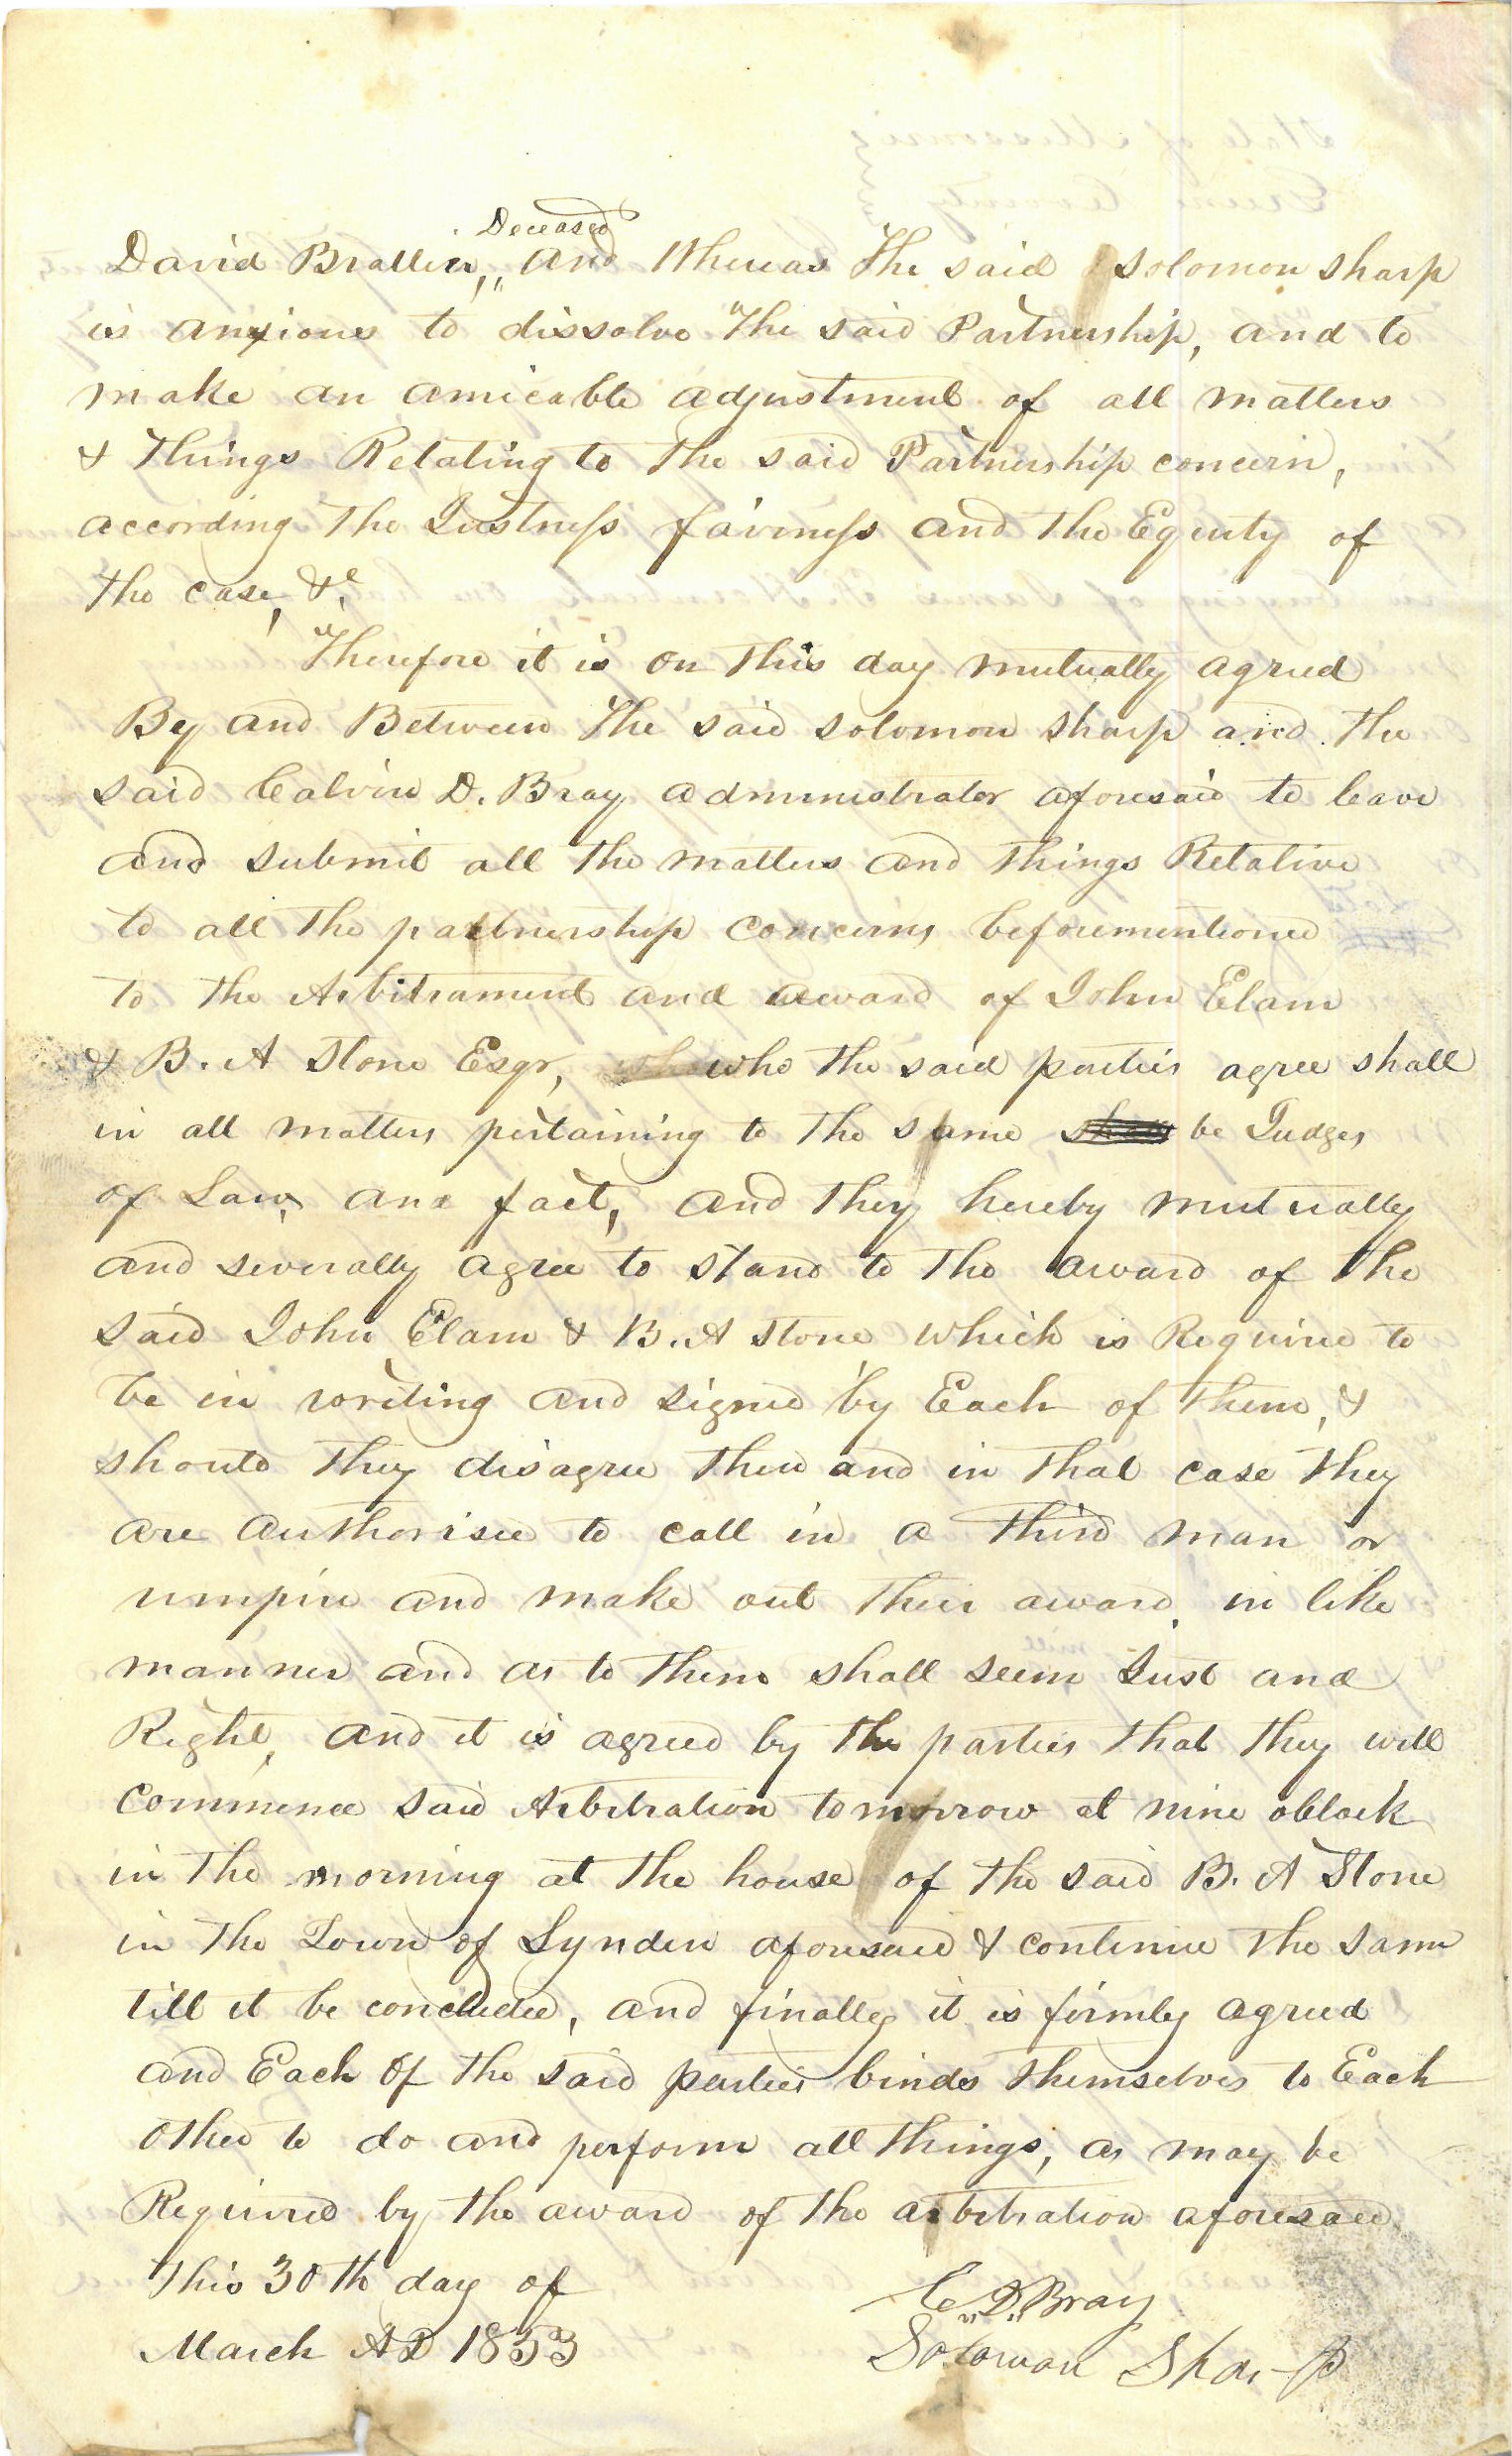 Deceased
David Brallier,, and Whereas The said Solomon Sharp
is anxious to dissolve The said Partnership, and to
make an amicable adjustment of all matters
& Things Relating to the said Partnership concern,
according The Justness fairness and the Equity of
the case, &c.
Therefore it is on this day mutually agreed
By and Between The said Solomon Sharp and the
said Calvin D. Bray administrator aforesaid to leave
and submit all the matters and things Relative
to all the partnership concerns beforementioned
to the Arbitrament and award of John Elam
& B. A Stone Esqr, who the said parties agree shall
in all matters pertaining to the same be Judges
of Law, and fact, and they hereby mutually
and severally agree to stand to the award of the
said John Elam & B. A Stone which is Required to
be in writing and signed by Each of them, &
should they disagree then and in that case they
are authorised to call in a third man or
umpire and make out their award, in like
manner and as to them shall seem Just and
Right, and it is agreed by the parties that they will
commence said Arbitration tomorrow at nine oclock
in the morning at the house of the said B. A Stone
in the Town of Lynden aforesaid & continue the same
till it be concluded, and finally it is firmly agreed
and Each of the said parties binds themselves to Each
other to do and perform all things, as may be
Required by the award of the arbitration aforesaid
This 30th day of
March AD 1853
C. D. Bray
Soloman Sharp